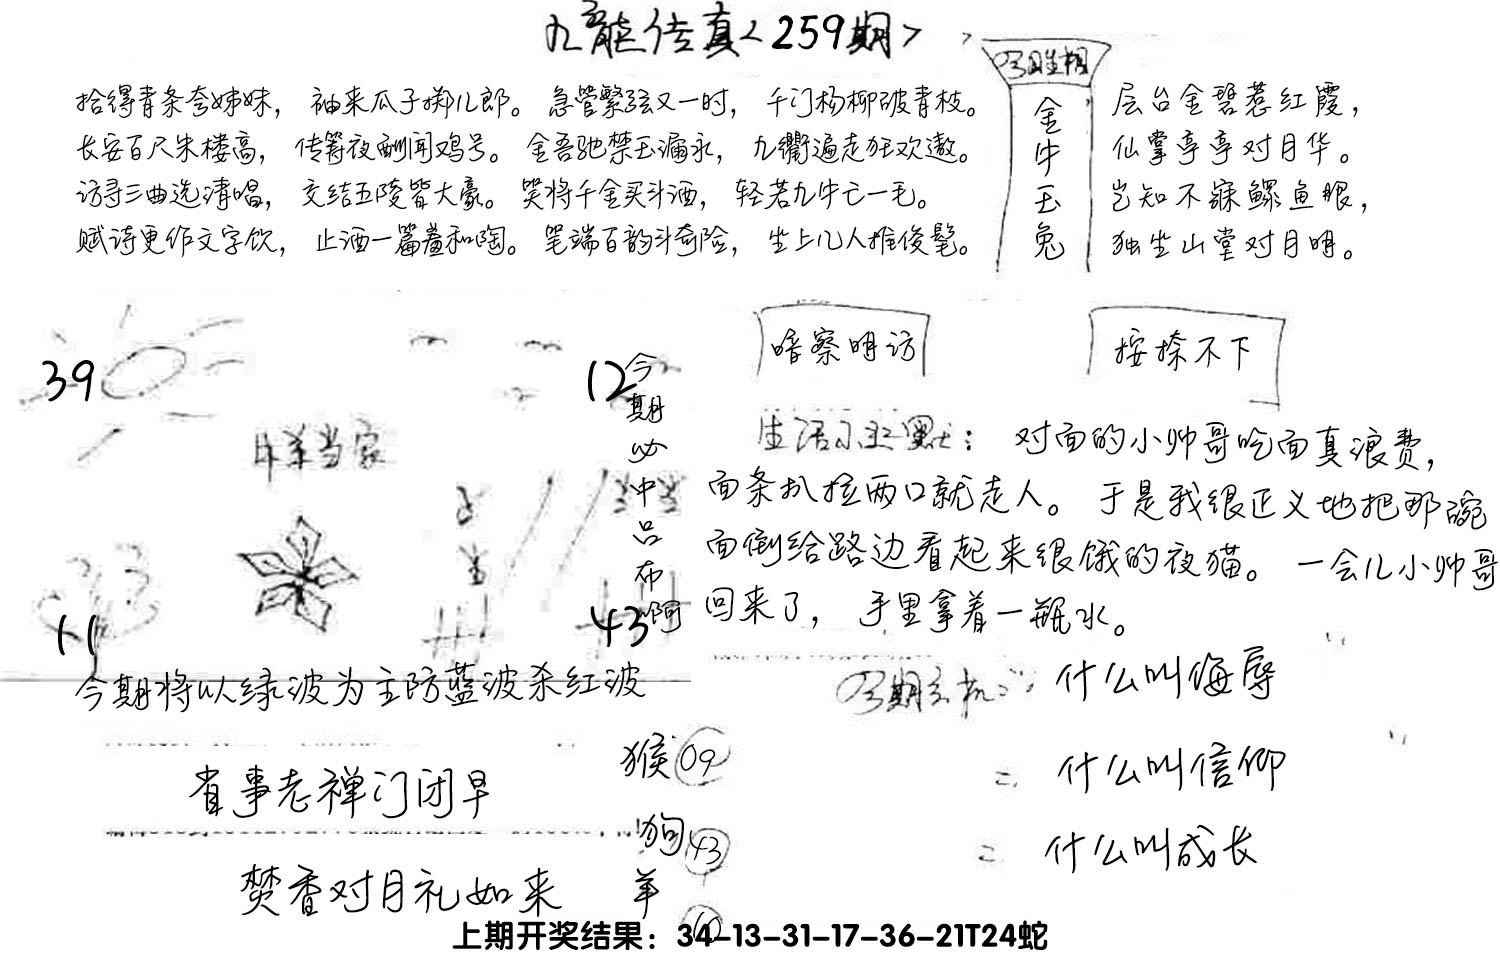 九龍传真<259期>
拾得青条夸姊妹，袖来瓜子掷儿郎。急管繁弦又一时，千门杨柳破青枝。
长安百尺朱楼高，传筹夜酬闻鸡号。金吾驰禁玉漏永，九衢遍走狂欢遨。
访寻三曲选清唱，交结五陵皆大豪。笑将千金买斗酒，轻若九牛亡一毛。
赋诗更作文字饮，止酒一篇羞和陶。笔端百韵斗奇险，坐上几人推俊髦。
今日生相
金牛玉兔
层台金碧惹红霞，
仙掌亭亭对月华。
岂知不寐鳏鱼眼，
独坐山堂对月明。
39
12
牛羊当家
今期必中吕布啊
11
43
今期将以绿波为主防蓝波杀红波
暗察明访
按捺不下
生活小幽默：对面的小帅哥吃面真浪费，
面条扒拉两口就走人。于是我很正义地把那碗
面倒给路边看起来很饿的夜猫。一会儿小帅哥
回来了，手里拿着一瓶水。
今期玄机：什么叫侮辱
=什么叫信仰
=什么叫成长
省事老禅门闭早
焚香对月礼如来
猴09
狗43
羊
上期开奖结果：34-13-31-17-36-21T24蛇